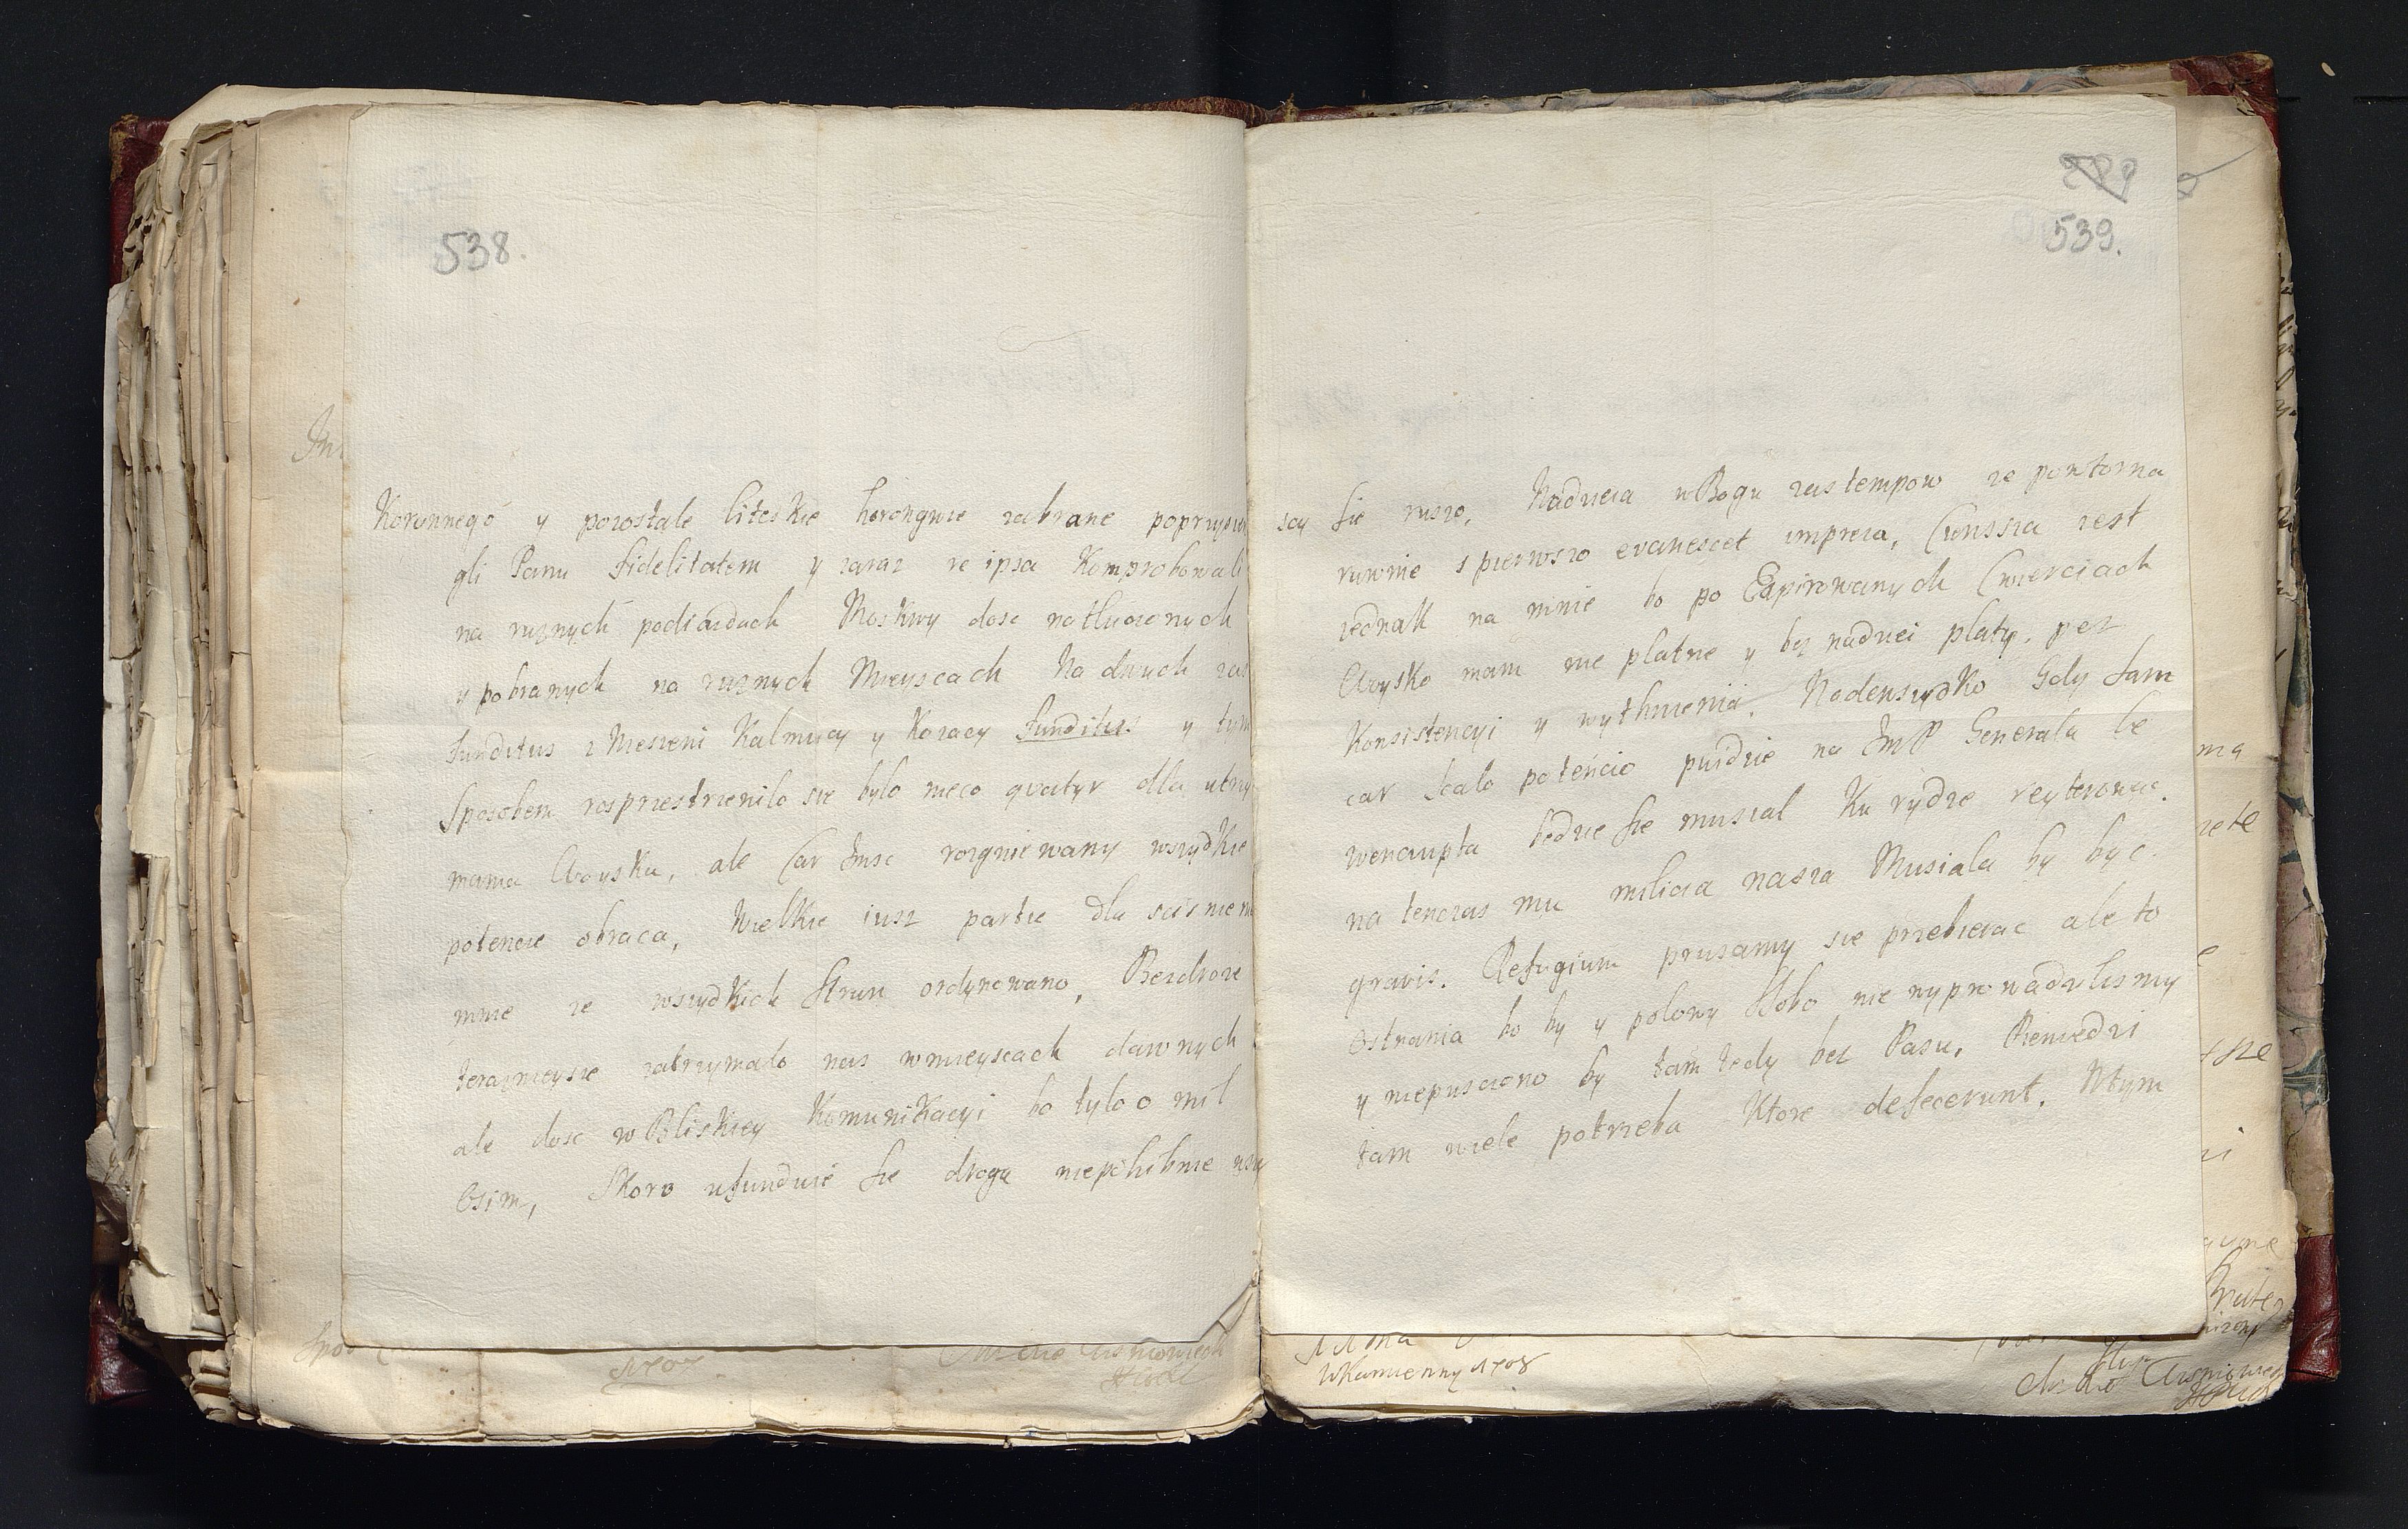 538.
Koronnego y pozostałe liteskie horongwie zabrane poprzysie
gli Panu fidelitatem y zaraz re ipsa Komprobowali
na rużnych podiazdach Moskwy dosc natłuczonych
y pobranych na rużnych Mieyscach Na dwuch zas
funditus z Niesieni Kalmucy y Kozacy funditus y tym
sposobem rosprzestrzeniło sie było nieco qvatyr dla utrzy
mania Woyska, ale Car Jmsc rozgniewany wszydkie
potencie obraca, Wielkie iusz partie dla scisnieni
mnie ze wszydkich strun ordynowano, Bezdroze
teraznieysze zatrzymało nas w mieyscach dawnych
ale dosc w Bliskiey Komunikacyi bo tylo o mil
Osim, Skoro ufunduie sie droga niepohibnie wszy
539.
scy sie ruszo, Nadzieia w Bogu zastempow ze powtorna
ruwnie s pierwszo evanescet impreza, Cienssza iest
iednak na mnie bo po Expirowanych Cwierciach
Woysko mam nie płatne y bez nadziei płaty, bez
Konsistencyi y wythnienia. Nadewszydko Gdy sam
car cało potencio puidzie na JmP Generała Le
wenaupta będzie sie musiał Ku rydze reyterowac.
na tenczas mu milicia nasza Musiała by być
gravis. Refugium prusamy sie przebierac ale to
Ostrania bo by y połowy Z sobo nie wyprowadzilismy
y niepusciono by tam tędy bez Pasu, Pieniedzi
tam wiele potrzeba Ktore defecerunt. W tym
1707
w Kamienny 1708